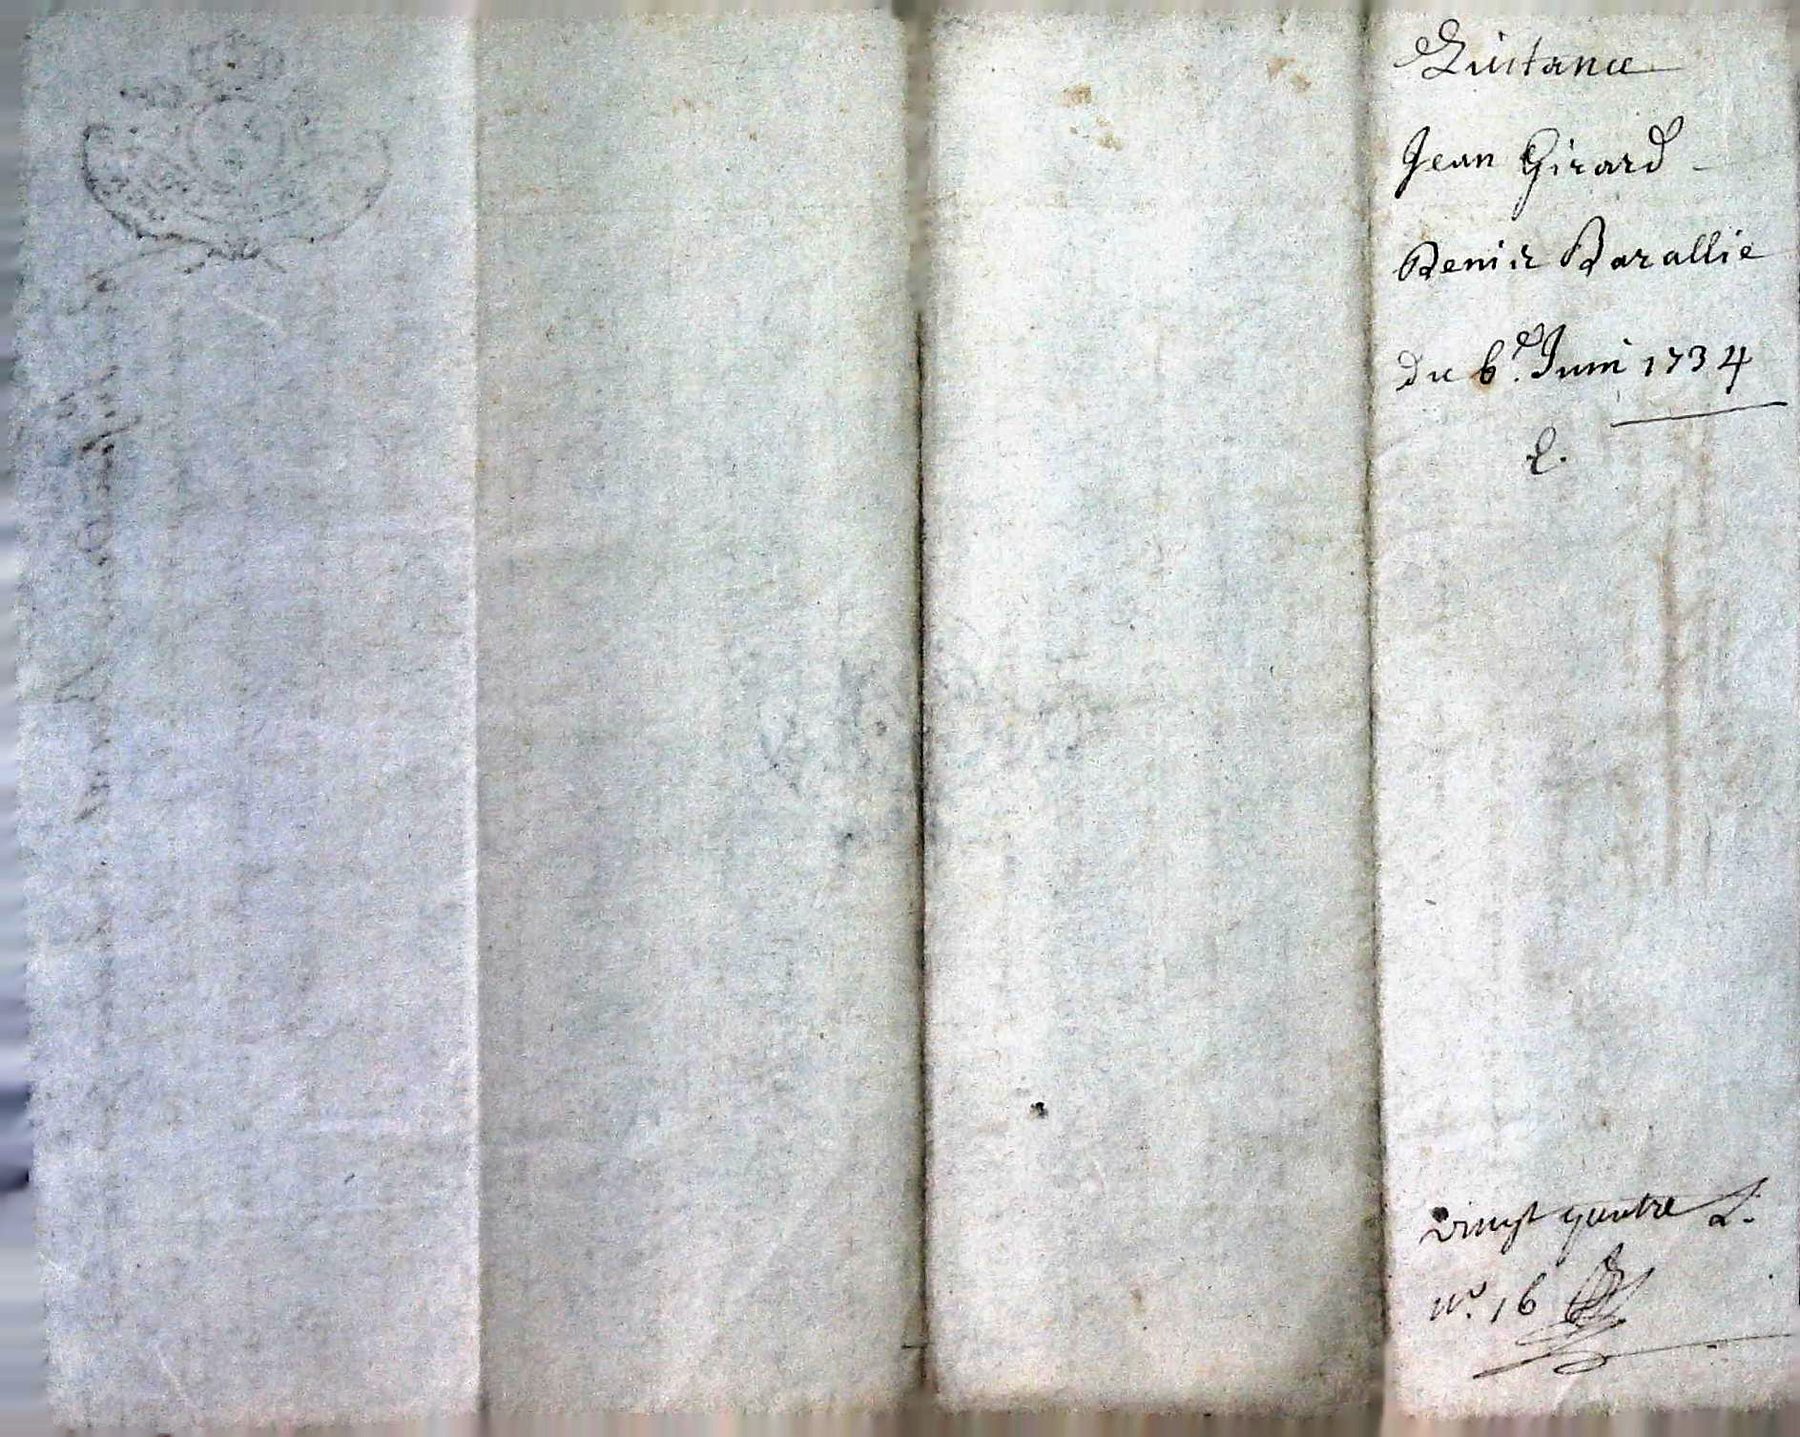 Quitance
Jean Girard
Denis Barallie
Du 6.e Juin 1734
L.
vingt quatre L.
n.o 16